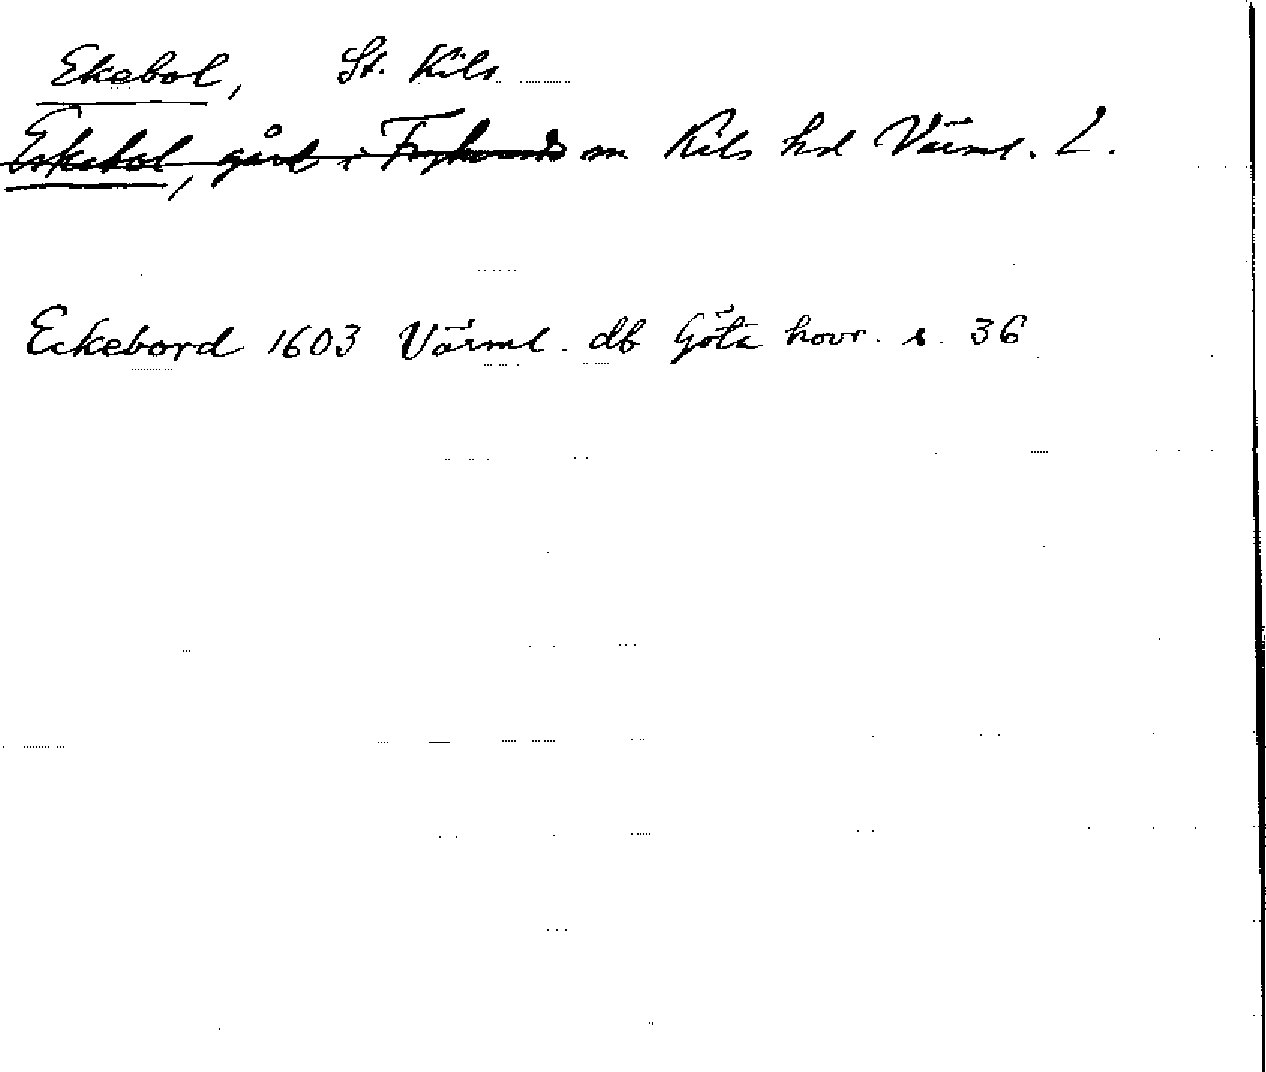 Ekebol, St. Kils
Ekebol, gård i sn Kils hd Värml. L.
Eckebord 1603 Värml. db Göta hovr. s. 36